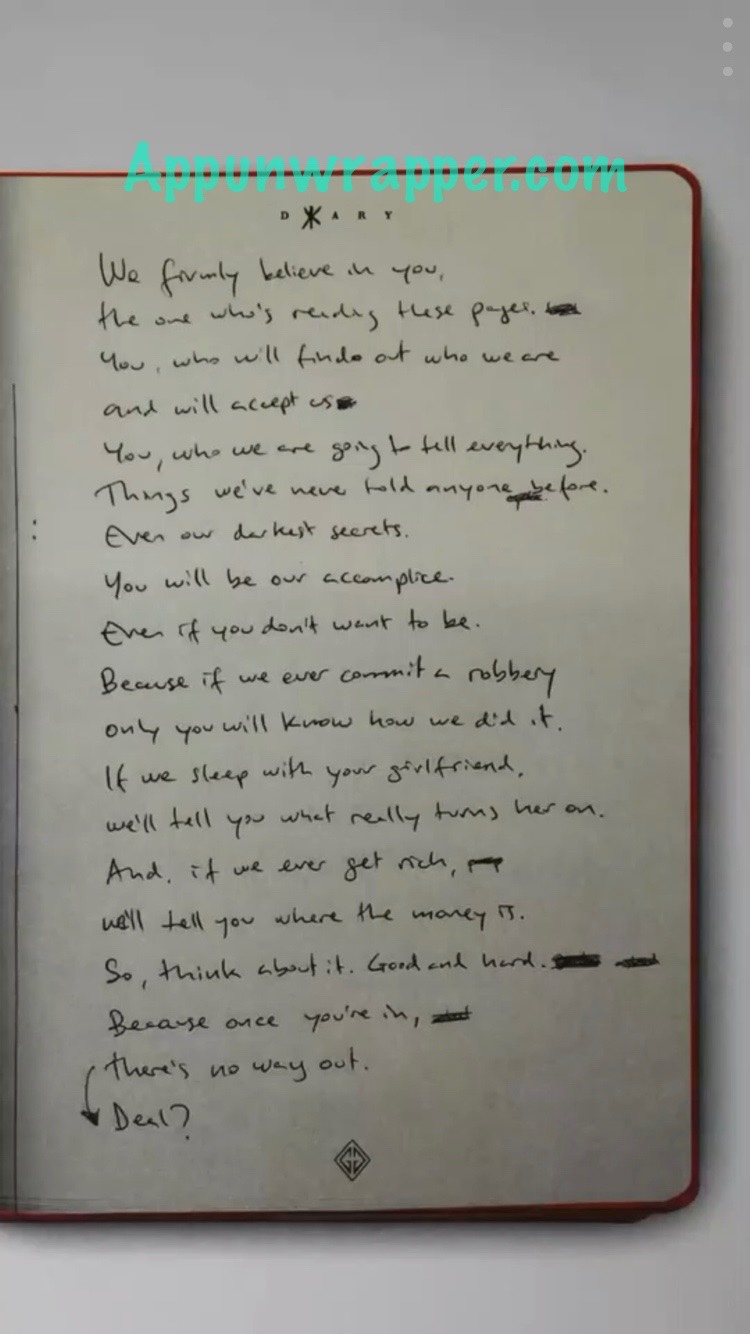 Appunwrapper.com
D K A R Y
We firmly believe in you,
the one who's reading these pages.
You, who will findo out who we are
and will accept us
You, who we are going to tell everything.
Things we've never told anyone before.
Even our darkest secrets.
You will be our accomplice.
Even if you don't want to be.
Because if we ever commit a robbery
only you will know how we did it.
If we sleep with your girlfriend,
we'll tell you what really turns her on.
And. if we ever get rich,
we'll tell you where the money is.
So, think about it. Good and hard.
Because once you're in,
there's no way out.
Deal?